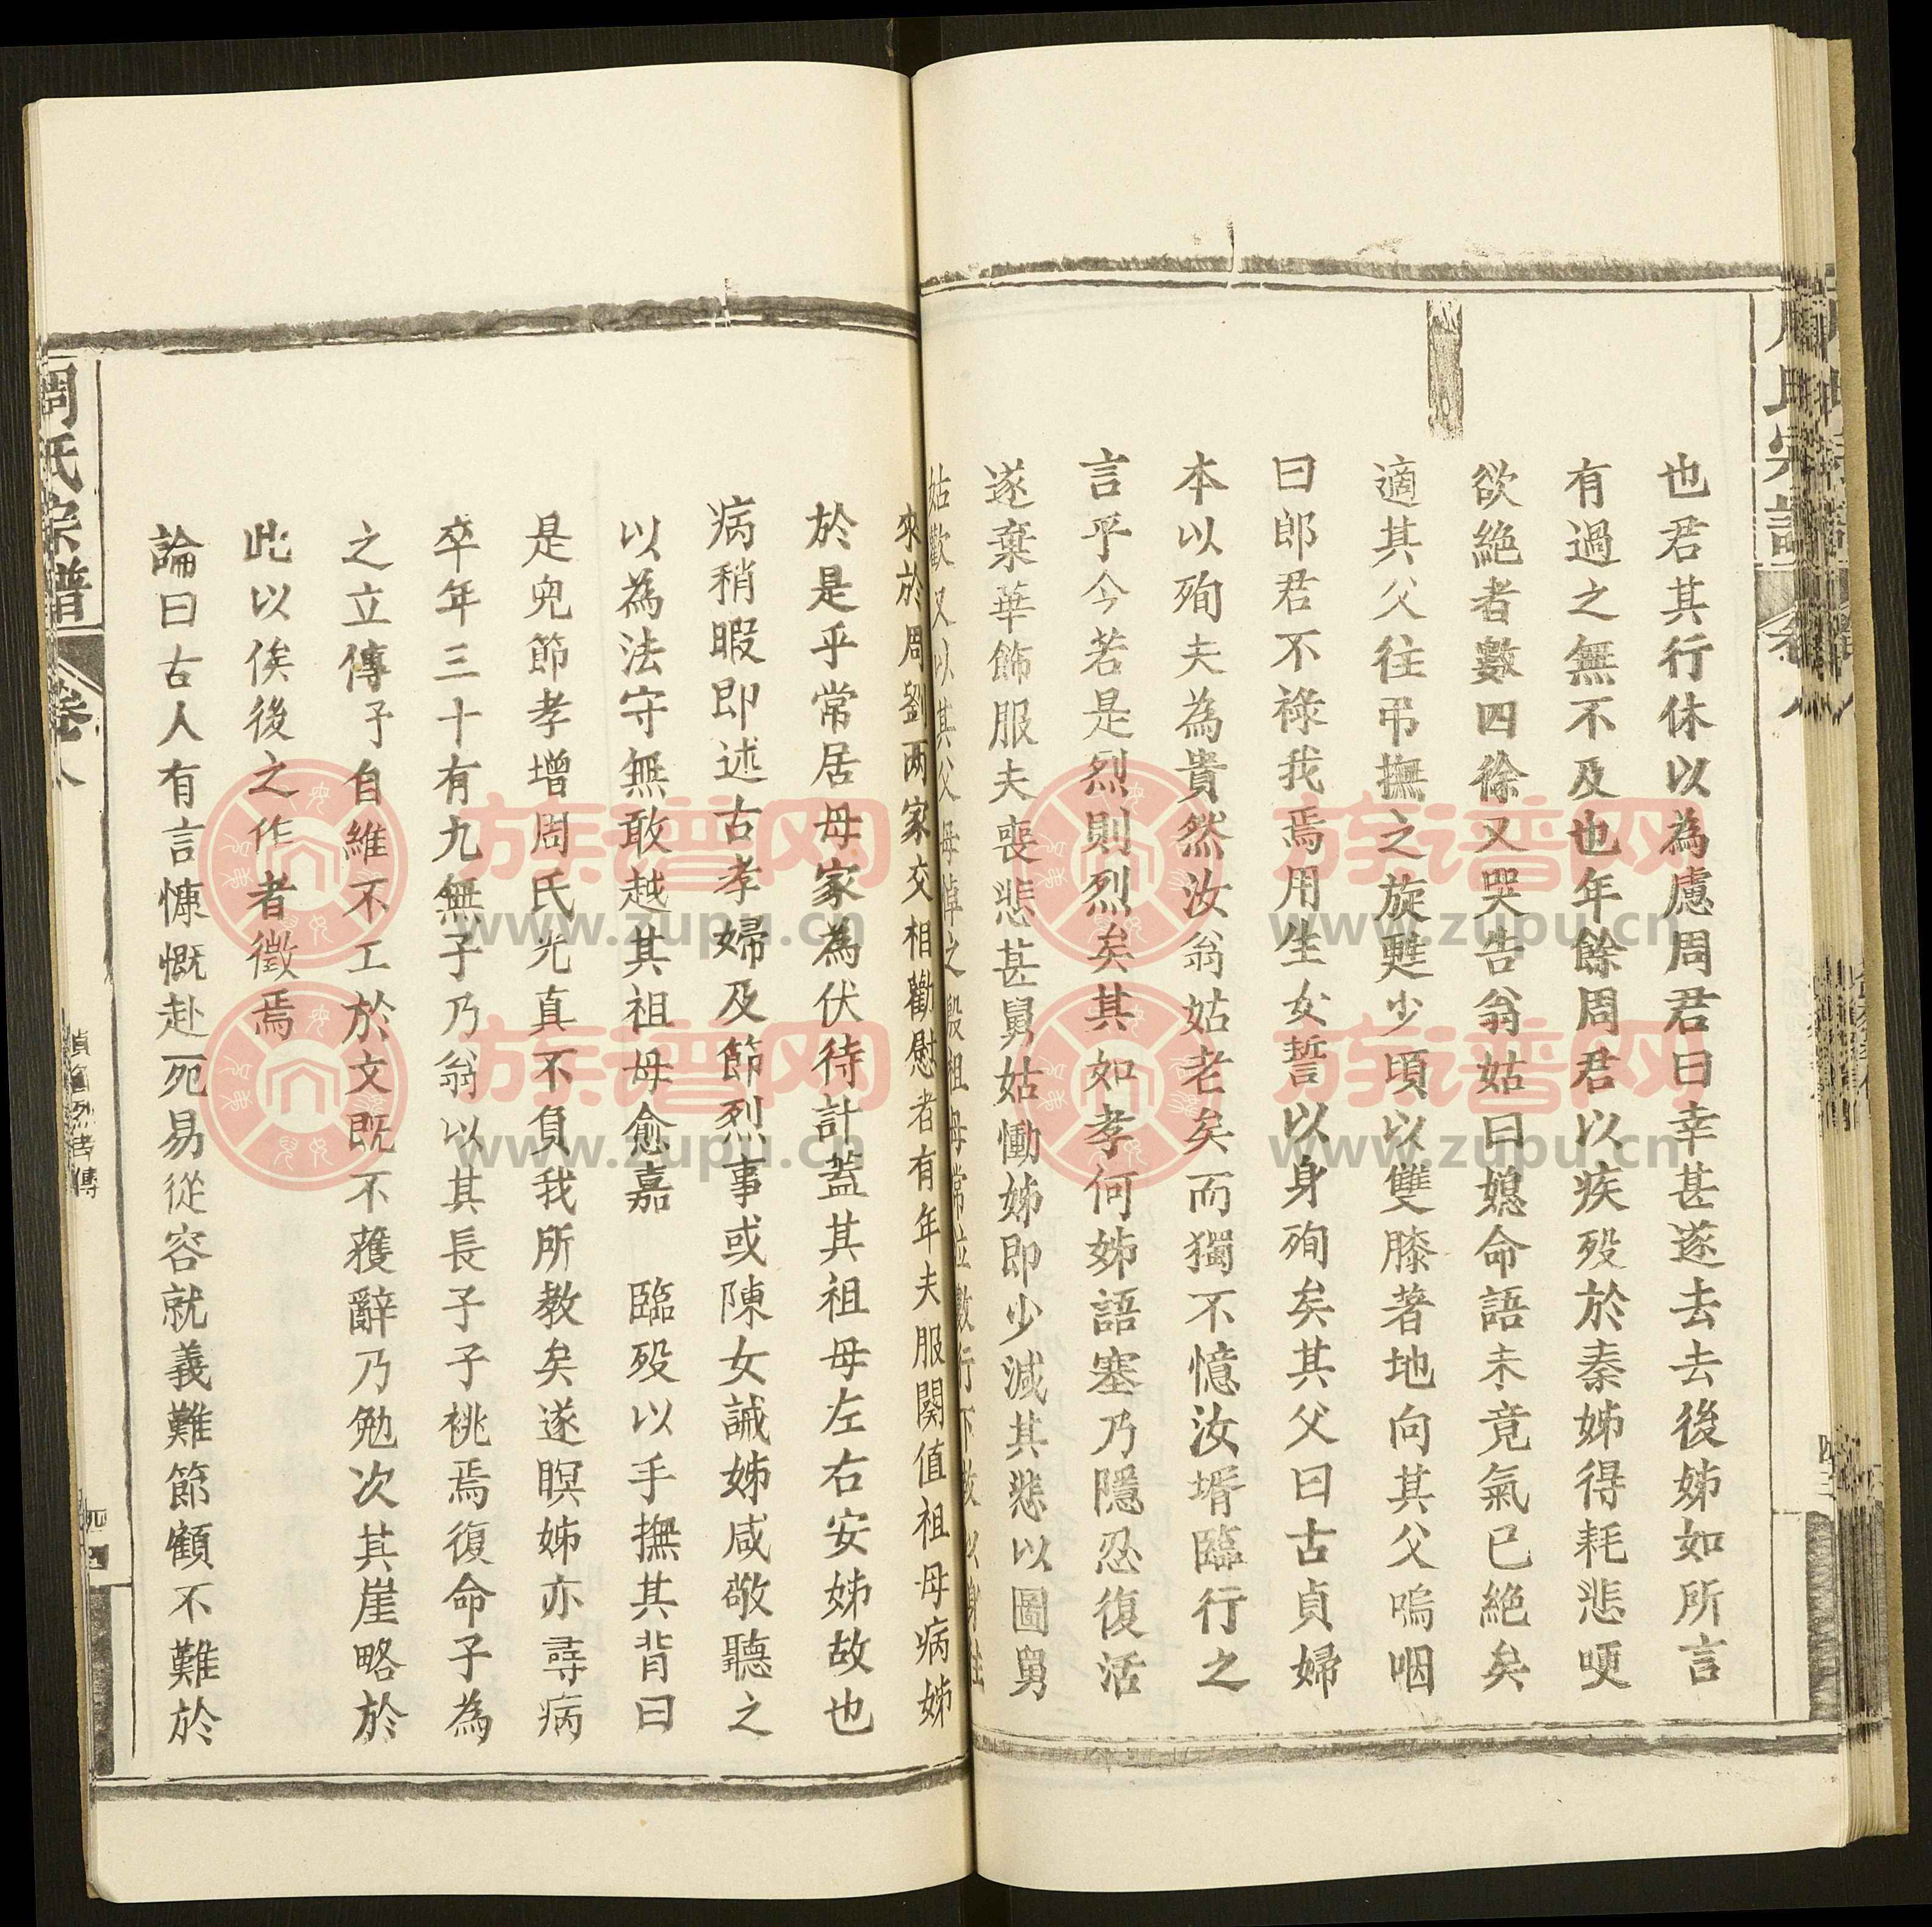 周氏宗譜
卷八
也君其行休以為慮周君曰幸甚遂去去後姊如所言
有過之無不及也年餘周君以疾歿於秦姊得耗悲哽
欲絶者數四徐又哭告翁姑曰媳命語未竟氣已絶矣
適其父往弔撫之旋甦少頃以雙膝著地向其父嗚咽
曰郎君不祿我焉用生女誓以身殉矣其父曰古貞婦
本以殉夫為貴然汝翁姑老矣而獨不憶汝壻臨行之
言乎今若是烈則烈矣其如孝何姊語塞乃隱忍復活
遂棄華飾服夫喪悲甚舅姑慟姊即少減其悲以圖舅
姑歡又以其父母悼之毀祖母常泣數行下故以身往
來於周劉兩家交相勸慰者有年夫服闋值祖母病姊
於是乎常居母家為伏待計蓋其祖母左右安姊故也
病稍暇即述古孝婦及節烈事或陳女誡姊咸敬聽之
以為法守無敢越其祖母愈嘉 臨歿以手撫其背曰
是兒節孝增周氏光真不負我所教矣遂瞑姊亦尋病
卒年三十有九無子乃翁以其長子子祧焉復命子為
之立傳子自維不工於文既不獲辭乃勉次其崖略於
此以俟後之作者徵焉
論曰古人有言慷慨赴死易從容就義難節顧不難於
周氏宗譜
卷八
傳
四四
族谱网
www.zupu.cn
族谱网
www.zupu.cn
族谱网
www.zupu.cn
族谱网
www.zupu.cn